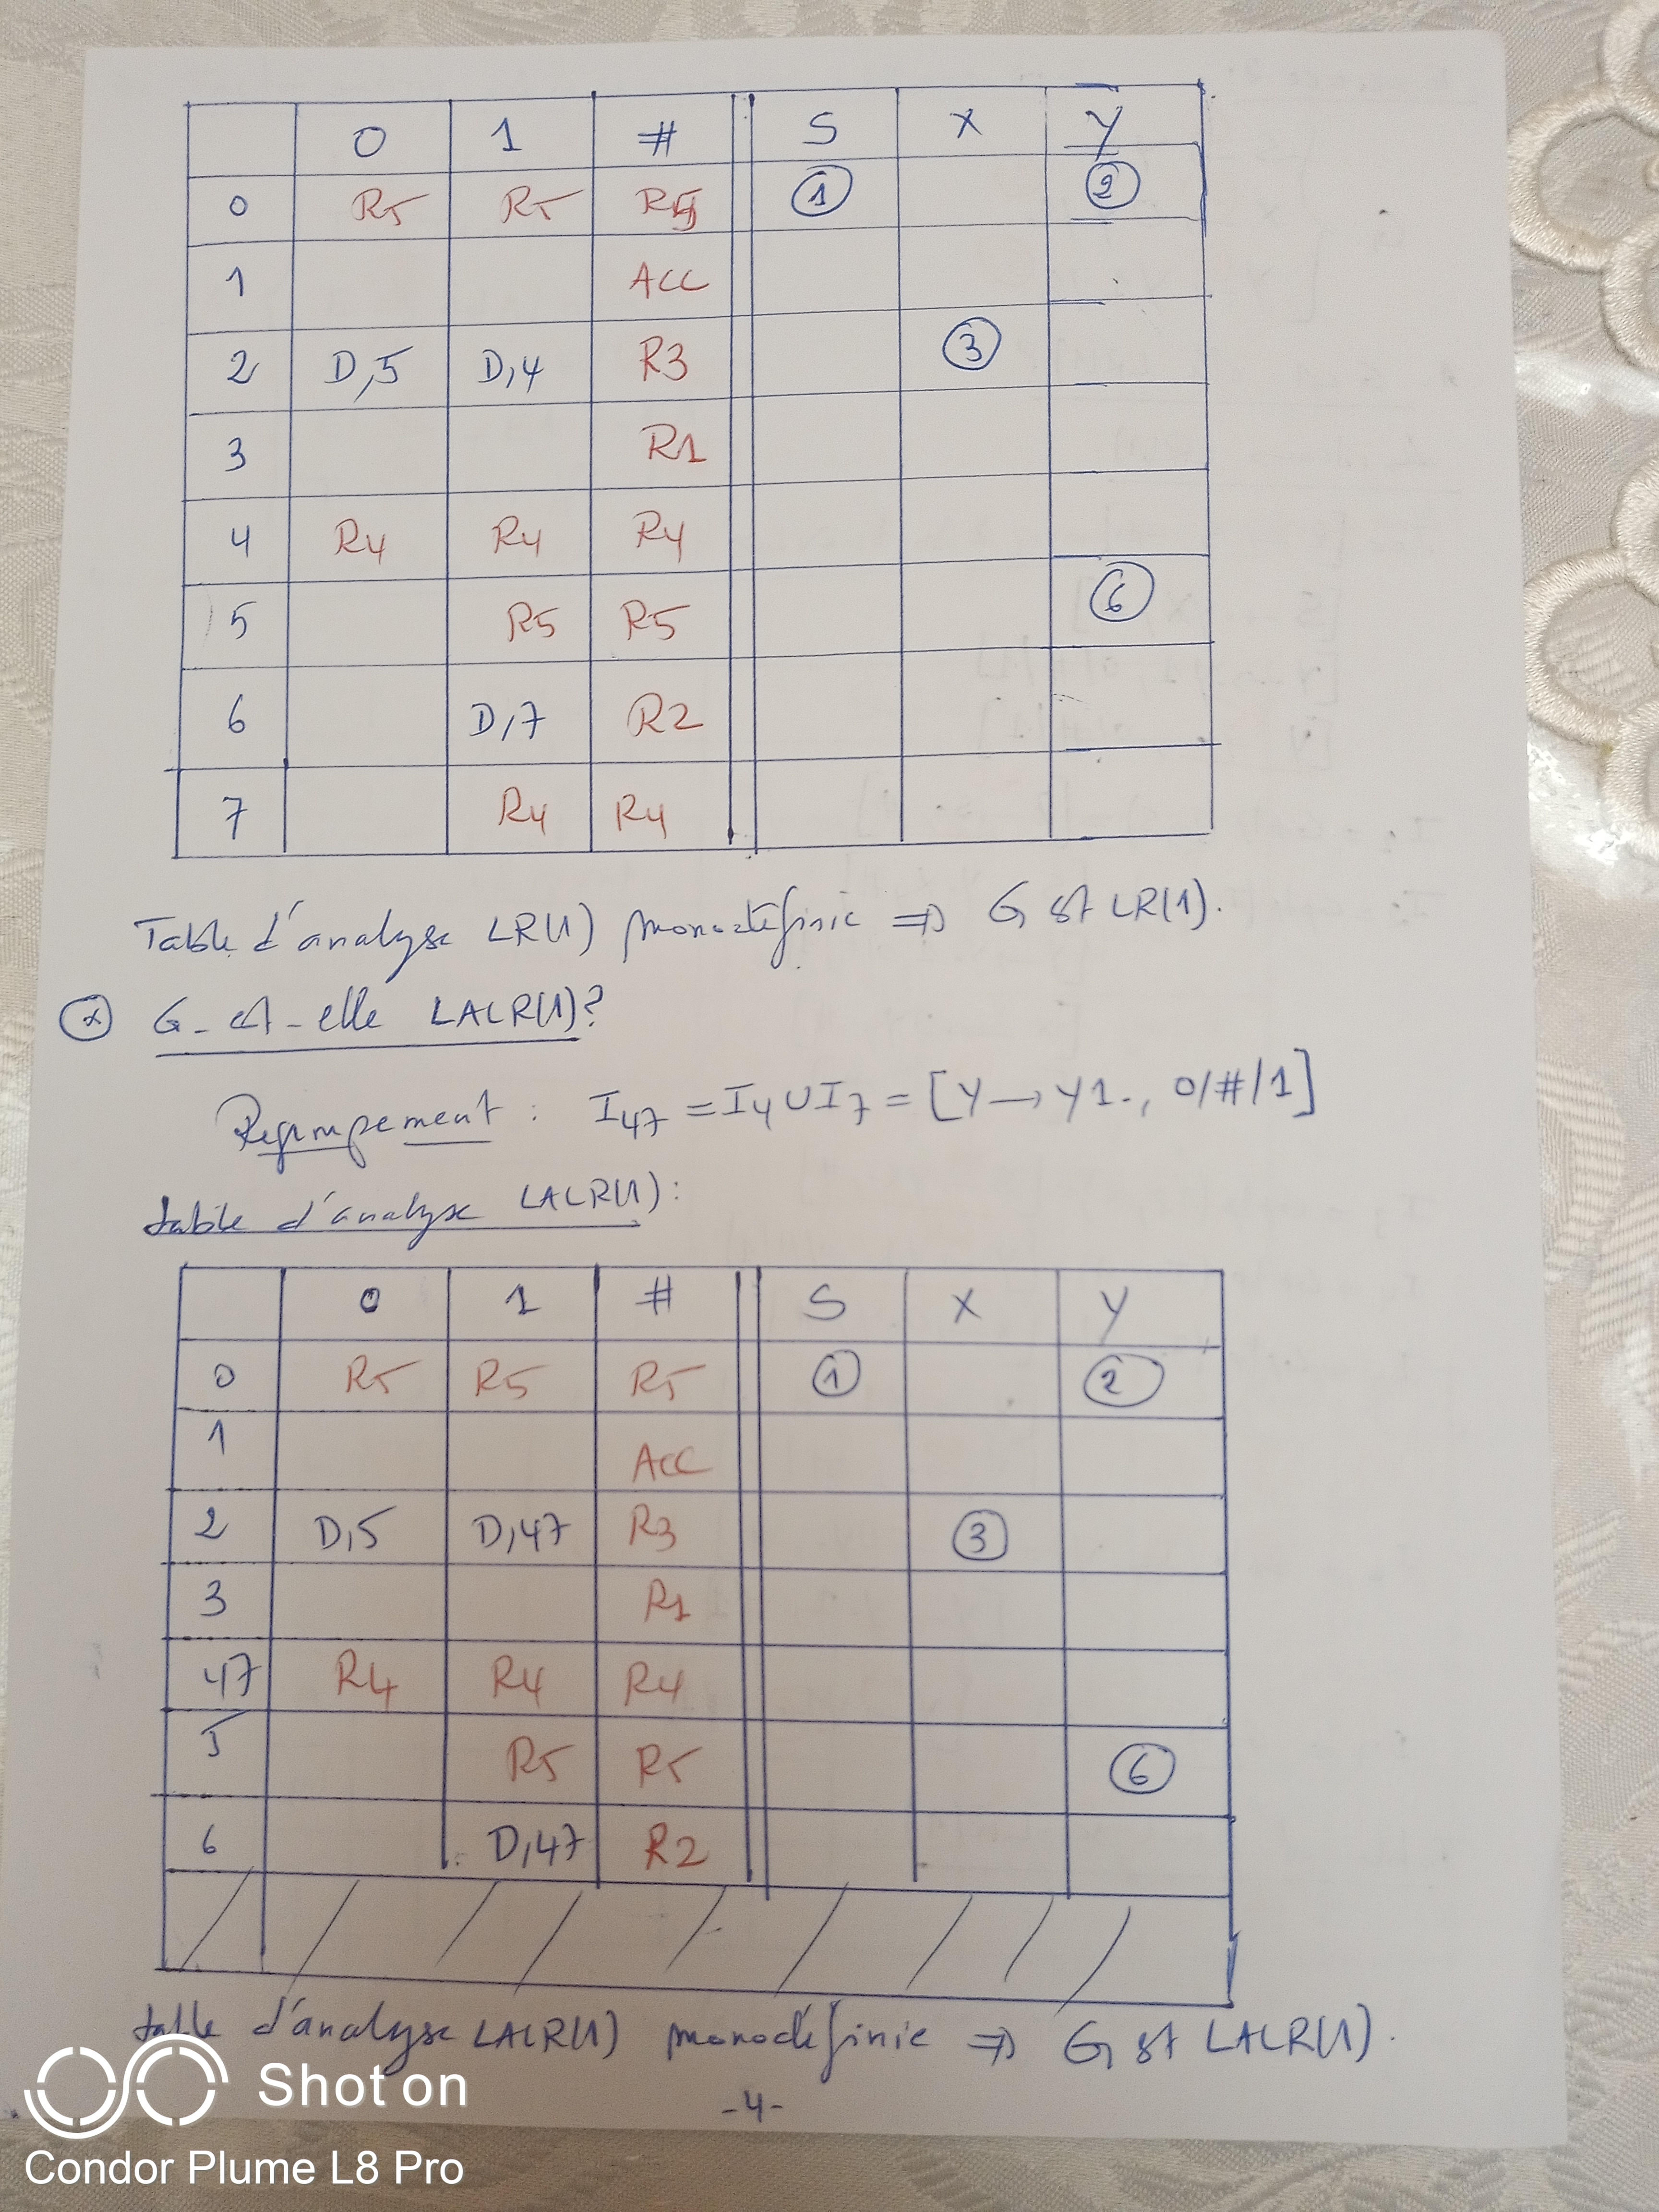 0 1 # S X Y
0 R5 R5 R5 1 2
1 ACC
2 D,5 D,4 R3 3
3 R1
4 R4 R4 R4
5 R5 R5 6
6 D,7 R2
7 R4 R4
Table d'analyse LR(1) monodéfinie => G est LR(1).
* G-est-elle LALR(1)?
Regroupement : I47 = I4 U I7 = [Y → Y1., 0/#/1]
table d'analyse LALR(1):
0 1 # S X Y
0 R5 R5 R5 1 2
1 ACC
2 D,5 D,47 R3 3
3 R1
47 R4 R4 R4
5 R5 R5 6
6 D,47 R2
table d'analyse LALR(1) monodéfinie => G est LALR(1).
-4-
Shot on
Condor Plume L8 Pro